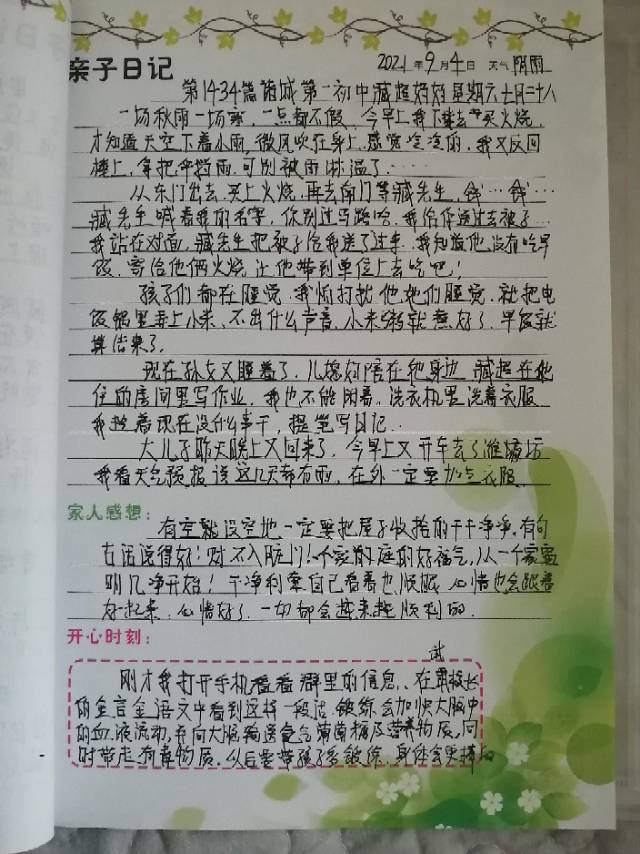 亲子日记 2021年9月4日 天气 阴雨
第1434篇诸城第一初中臧超妈妈 星期六七月二十八
一场秋雨一场寒,一点都不假,今早上我下楼去买火烧,
才知道天空下着小雨,微风吹在身上,感觉冷冷的,我又返回
楼上,拿把伞挡雨,可别被雨淋湿了……
从东门出去,买上火烧,再去南门等臧先生,钱…钱…
臧先生喊着我的名字,你别过马路哈,我给你送过去被子…
我站在对面,臧先生把被子给我送了过来,我知道他没有吃早
饭,寄给他俩火烧,让他带到单位上去吃吧!
孩子们都在睡觉,我怕打扰他她们睡觉,就把电
饭锅里弄上小米,不出什么声音,小米转就煮好了,早饭就
算结束了。
现在孙女又睡着了,儿媳妇陪在她身边,臧超在他
住的房间里写作业,我也不能闲着。洗衣机里洗着衣服
我趁着现在没什么事干,提笔写日记。
大儿子昨天晚上又回来了,今早上又开车去了潍坊
我看天气预报说这几天都有雨,在外一定要加点衣服。
家人感想:
有空就没空地,一定要把屋子收拾的干干净净,有句
古话说得好!财不入脏门!一个家庭的好福气,从一个家窗
明几净开始!干净利索自己看着也顺眼,心情也会跟着
好起来,心情好了,一切都会越来越顺利的。
开心时刻:
刚才我打开手机看看群里的信息,在肃校长
的金言金语文中看到这样一段话,锻练会加快大脑中
的血液流动,并向大脑输送氧气葡萄糖及营养物质,同
时带走有毒物质。以后要带孩子多锻练,身体会更棒的